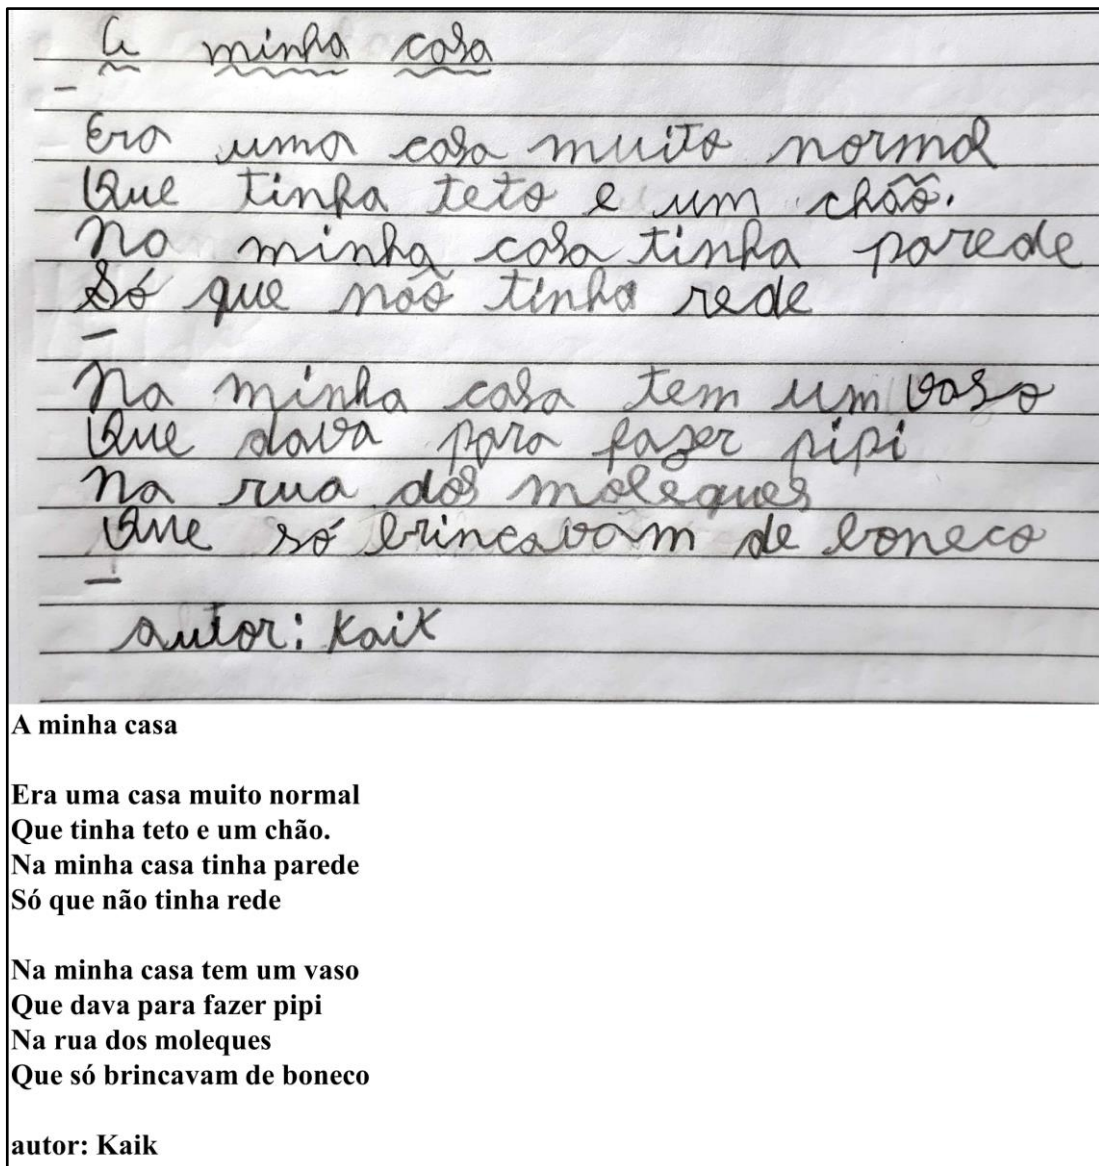 A minha casa
Era uma casa muito normal
Que tinha teto e um chão.
Na minha casa tinha parede
Só que não tinha rede
Na minha casa tem um vaso
Que dava para fazer pipi
Na rua dos moleques
Que só brincavam de boneco
autor: Kaik
A minha casa
Era uma casa muito normal
Que tinha teto e um chão.
Na minha casa tinha parede
Só que não tinha rede
Na minha casa tem um vaso
Que dava para fazer pipi
Na rua dos moleques
Que só brincavam de boneco
autor: Kaik